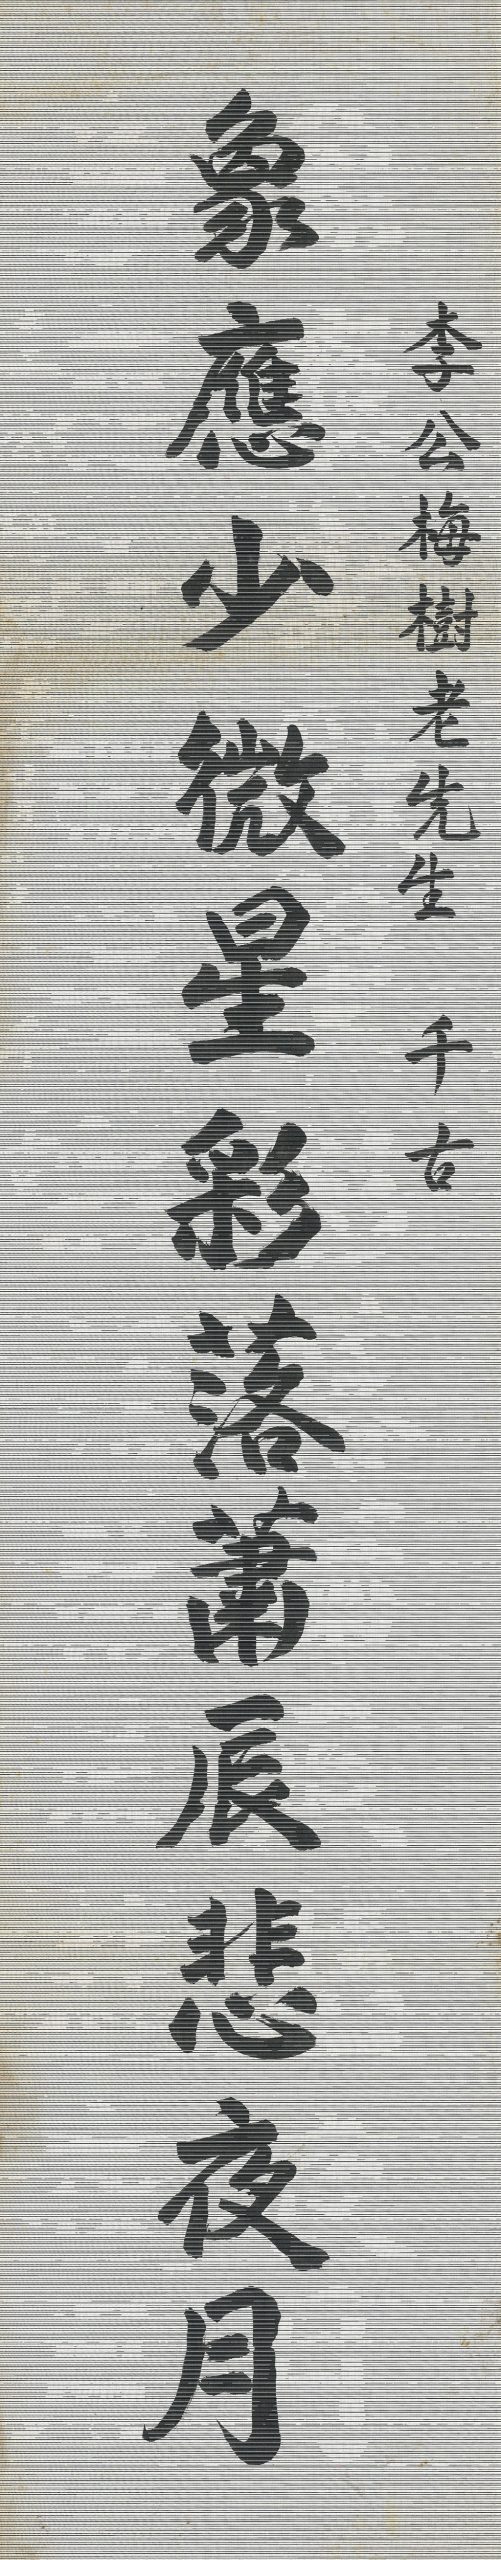 李公梅樹老先生 千古
象應少微星彩落蕭辰悲夜月